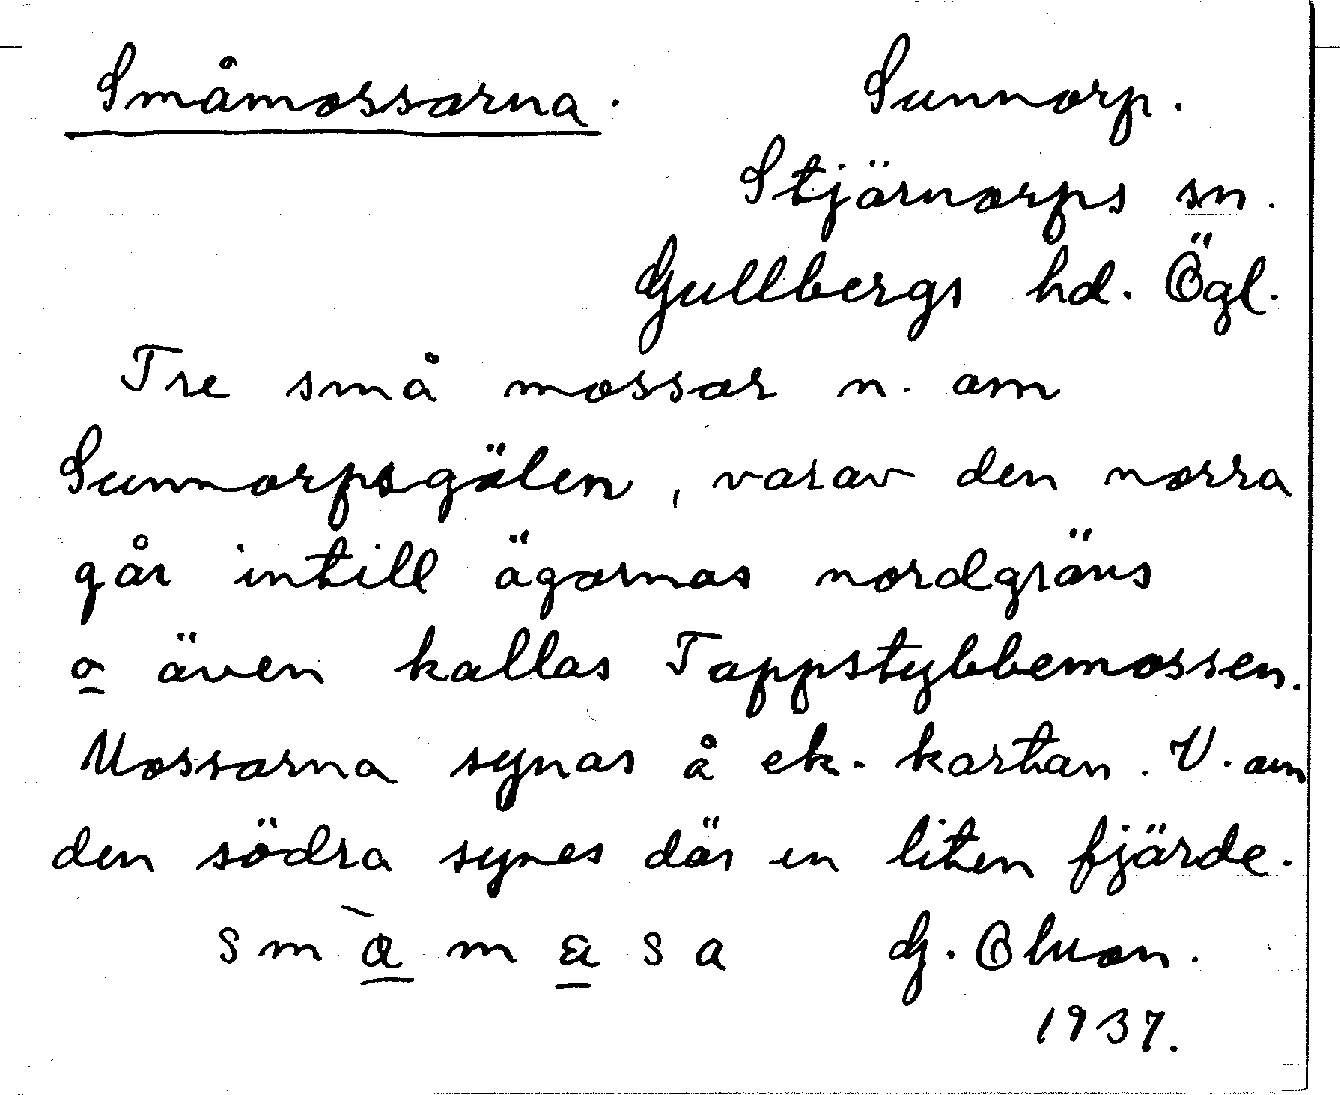 Småmossarna. Sunnorp.
Stjärnorps sn.
Gullbergs hd. Ögl.
Tre små mossar n. om
Sunnorpsgölen, varav den norra
går intill ägornas nordgräns
o även kallas Tappstybbemossen.
Mossarna synas å ek. kartan. V. om
den södra synes där en liten fjärde.
G. Olson.
1937.